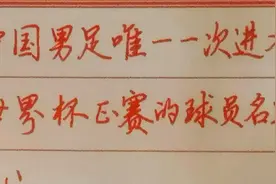 中国男足唯一一次进
世界杯正赛的球员名